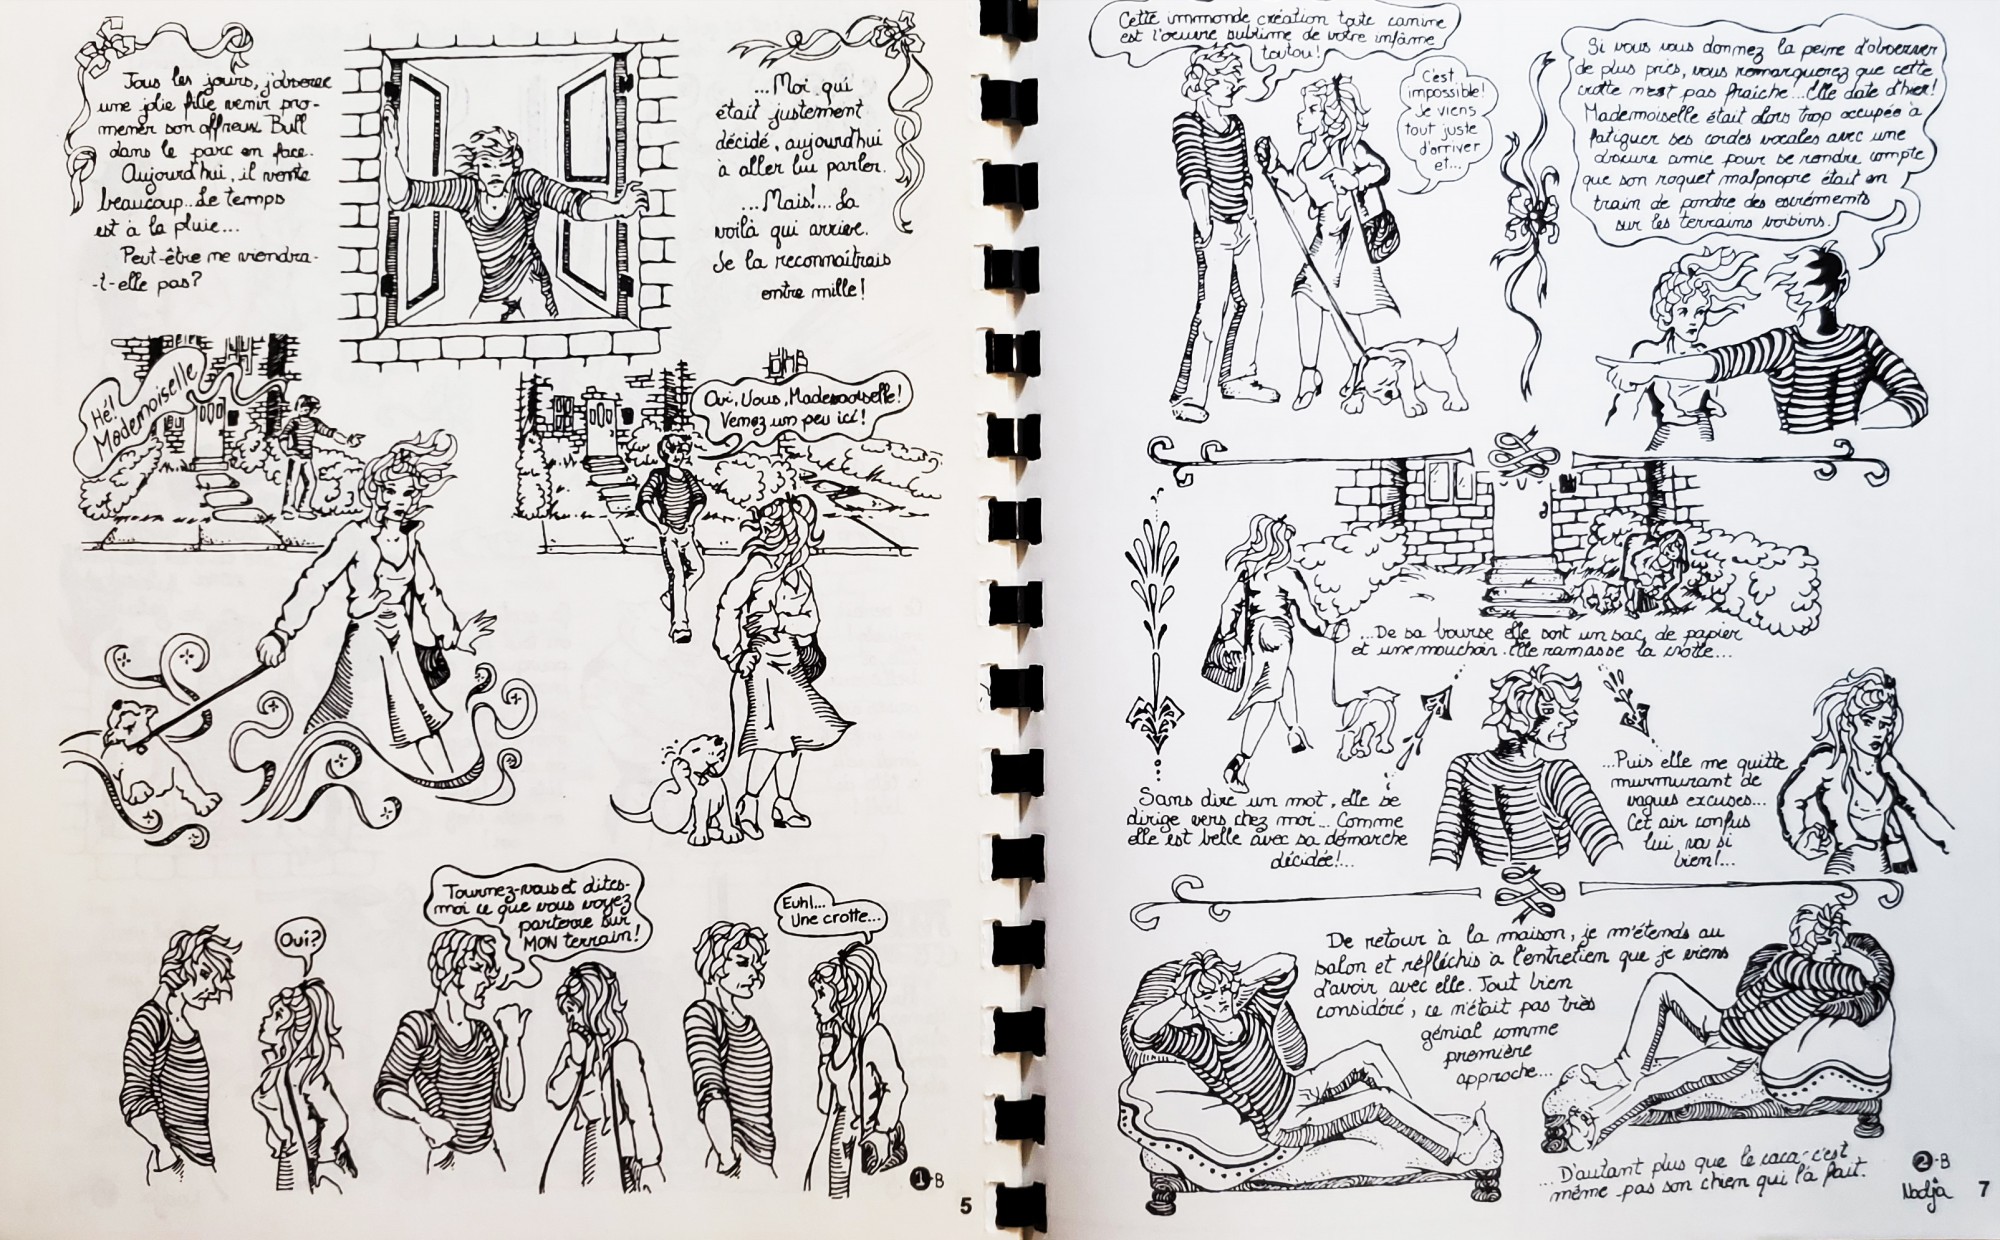 Tous les jours, j'observe
une jolie fille venir pro-
mener son affreux Bull
dans le parc en face.
Aujourd'hui, il vente
beaucoup... Le temps
est à la pluie...
Peut-être ne viendra-
-t-elle pas?
...Moi qui
était justement
décidé, aujourd'hui
à aller lui parler.
...Mais!... La
voilà qui arrive.
Je la reconnaitrais
entre mille!
Hé!
Mademoiselle
Oui, Vous, Mademoiselle!
Venez un peu ici!
Oui?
Tournez-vous et dites-
moi ce que vous voyez
parterre sur
MON terrain!
Euh!...
Une crotte...
1-B
5
Cette immonde création toute canine
est l'oeuvre sublime de votre infâme
toutou!
C'est
impossible!
Je viens
tout juste
d'arriver
et...
Si vous vous donnez la peine d'observer
de plus près, vous remarquerez que cette
crotte n'est pas fraîche... Elle date d'hier!
Mademoiselle était alors trop occupée à
fatiguer ses cordes vocales avec une
d'oeure amie pour se rendre compte
que son roquet malpropre était en
train de pondre des excréments
sur les terrains voisins.
...De sa bourse elle sort un sac de papier
et une mouchoir. Elle ramasse la crotte...
Sans dire un mot, elle se
dirige vers chez moi... Comme
elle est belle avec sa démarche
décidée!...
...Puis elle me quitte
murmurant de
vagues excuses...
Cet air confus
lui va si
bien!...
De retour à la maison, je m'étends au
salon et réfléchis à l'entretien que je viens
d'avoir avec elle. Tout bien
considéré, ce n'était pas très
génial comme
première
approche...
...D'autant plus que le caca-c'est
même-pas son chien qui l'a fait.
2-B
Nadja
7